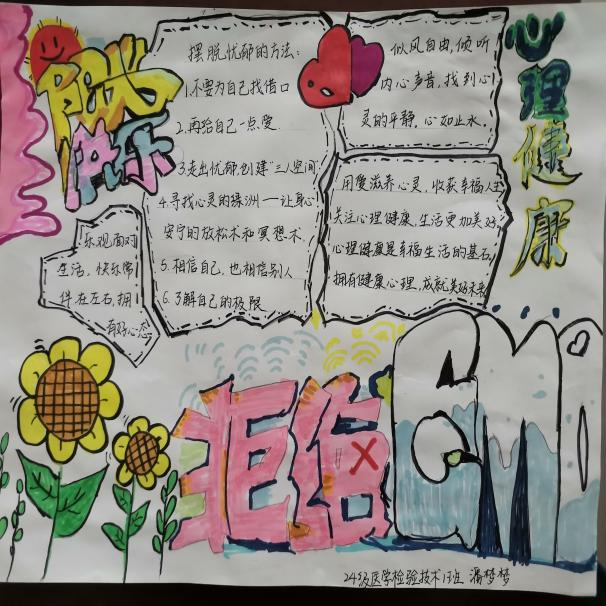 阳光
快乐
摆脱忧郁的方法:
1.不要为自己找借口
2.再给自己一点爱
3.走出忧郁创建"三人空间"
4.寻找心灵的绿洲一让身心
安宁的放松术和冥想术
5.相信自己,也相信别人
6.了解自己的极限
似风自由,倾听
内心声音,找到心
灵的平静,心如止水.
心理健康
用爱滋养心灵,收获幸福人生
关注心理健康,生活更加美好
心理健康是幸福生活的基石,
拥有健康心理,成就美好未来
乐观面对
生活,快乐常
伴在左右,拥
有好心态
拒绝EMO
24级医学检验技术1班 潘梦梦